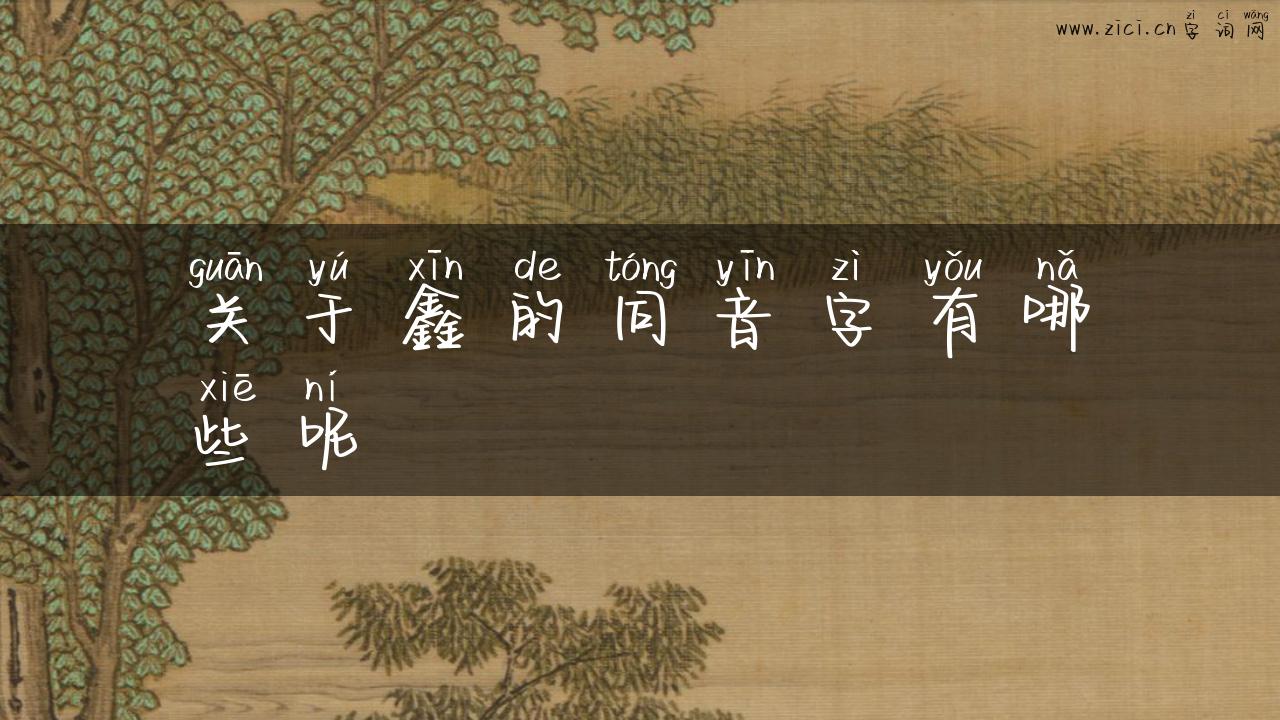 zì cí wǎng
www.zici.cn字词网
guān yú xīn de tóng yīn zì yǒu nǎ
关于鑫的同音字有哪
xiē ní
些呢